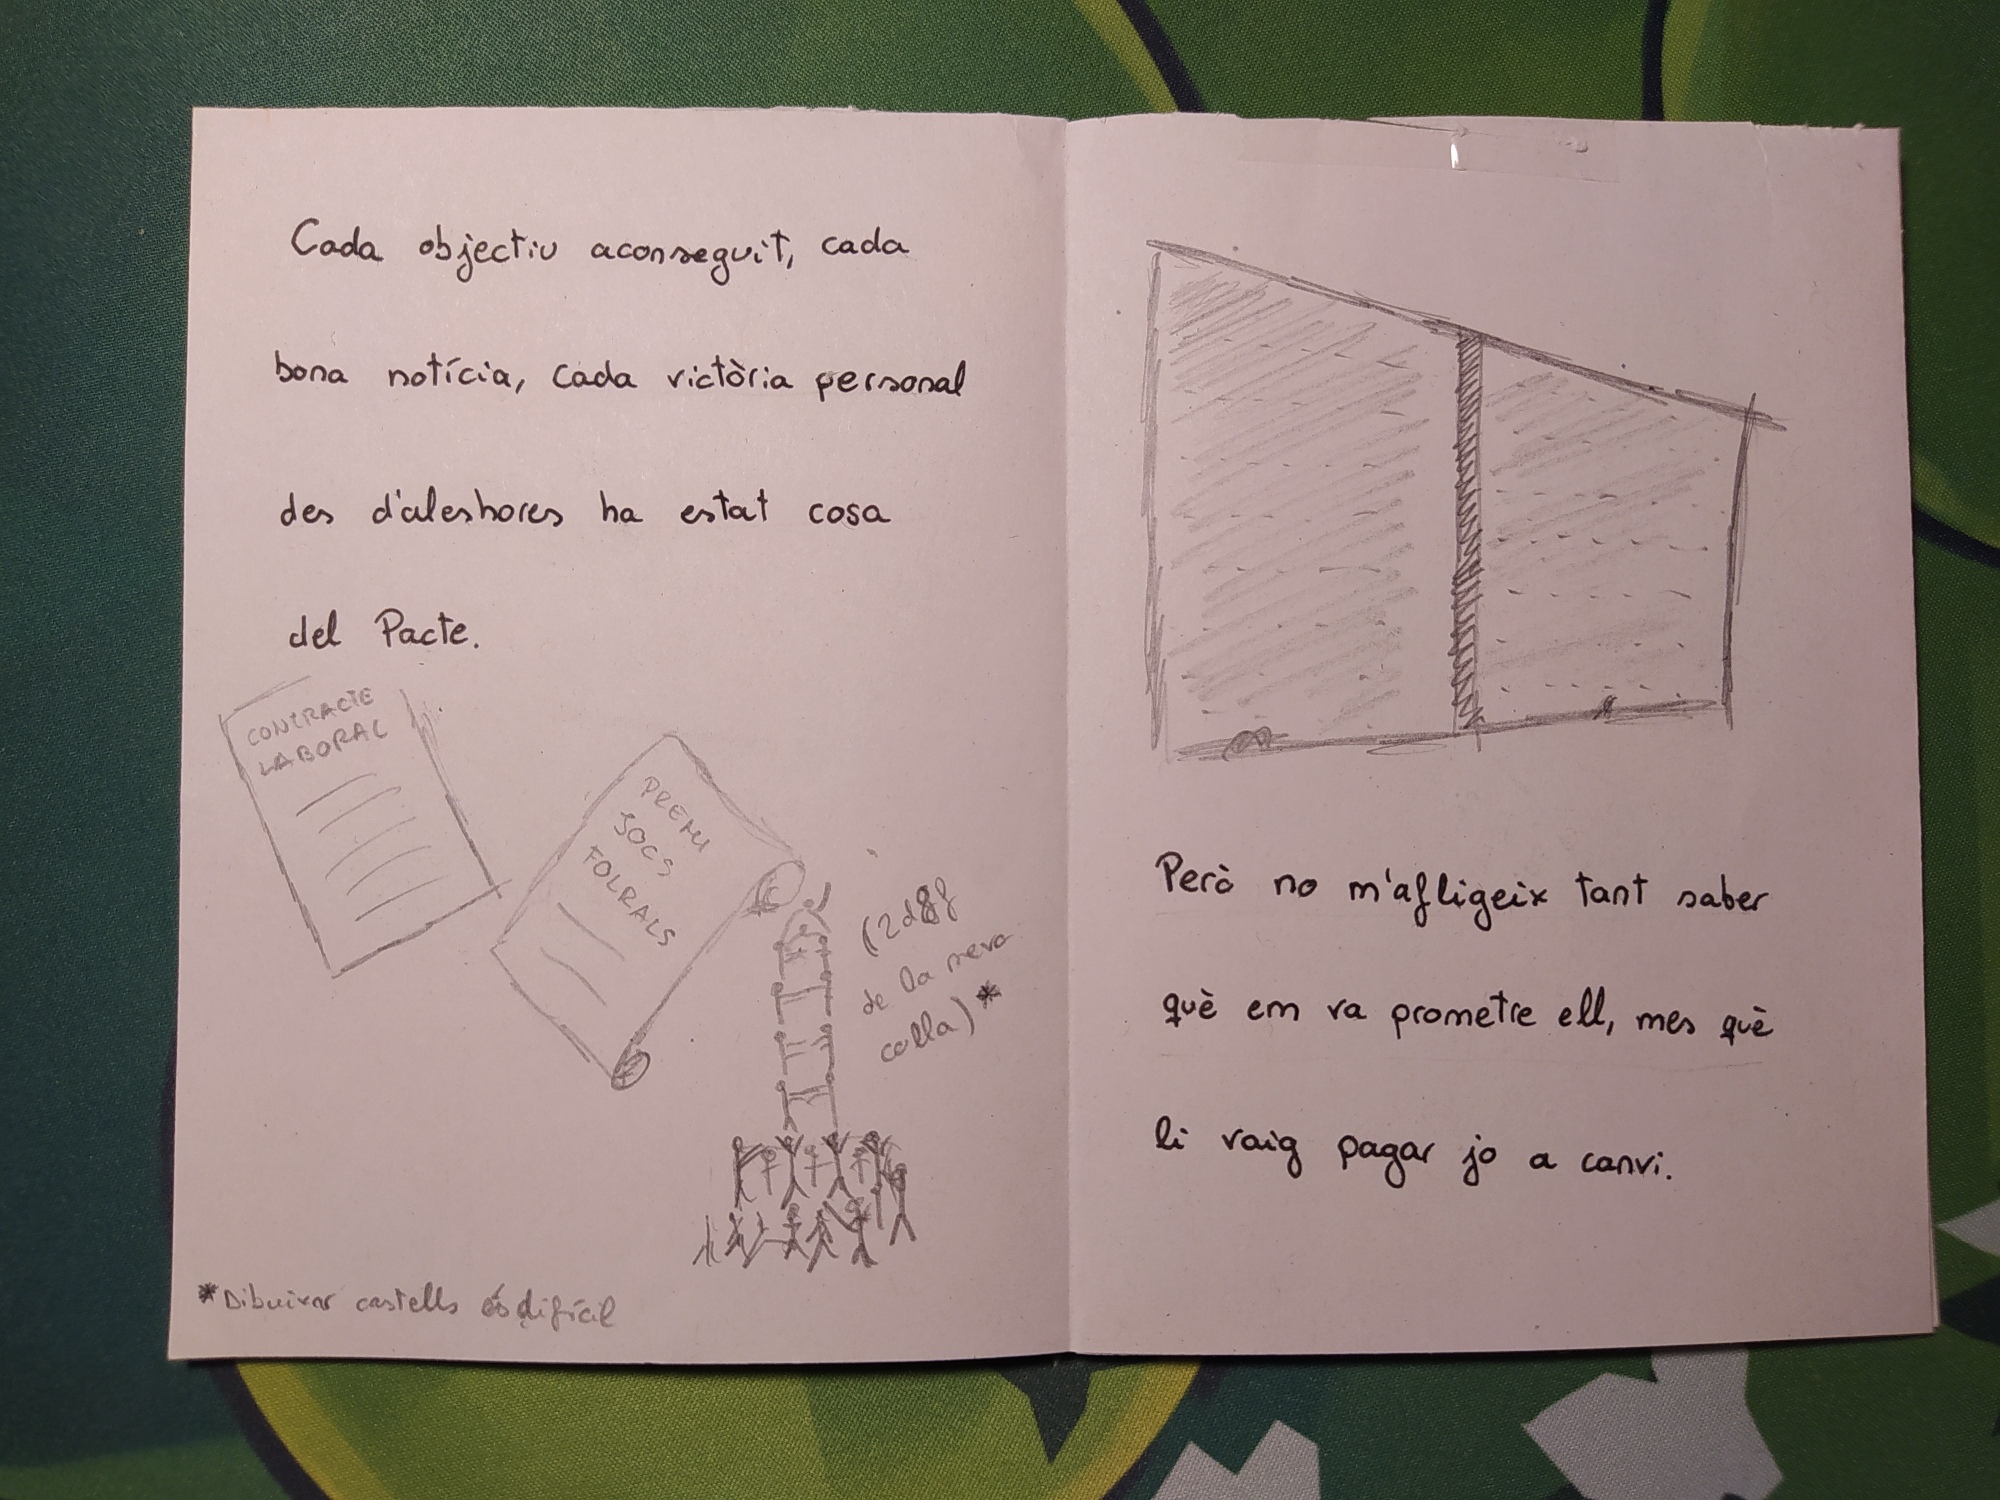 Cada objectiu aconseguit, cada
bona notícia, cada victòria personal
des d'aleshores ha estat cosa
del Pacte.
CONTRACTE
LABORAL
PREMI
JOCS
FOLRALS
(2d8f
de la meva
colla)*
*Dibuixar castells és difícil
Però no m'afligeix tant saber
què em va prometre ell, mes què
li vaig pagar jo a canvi.